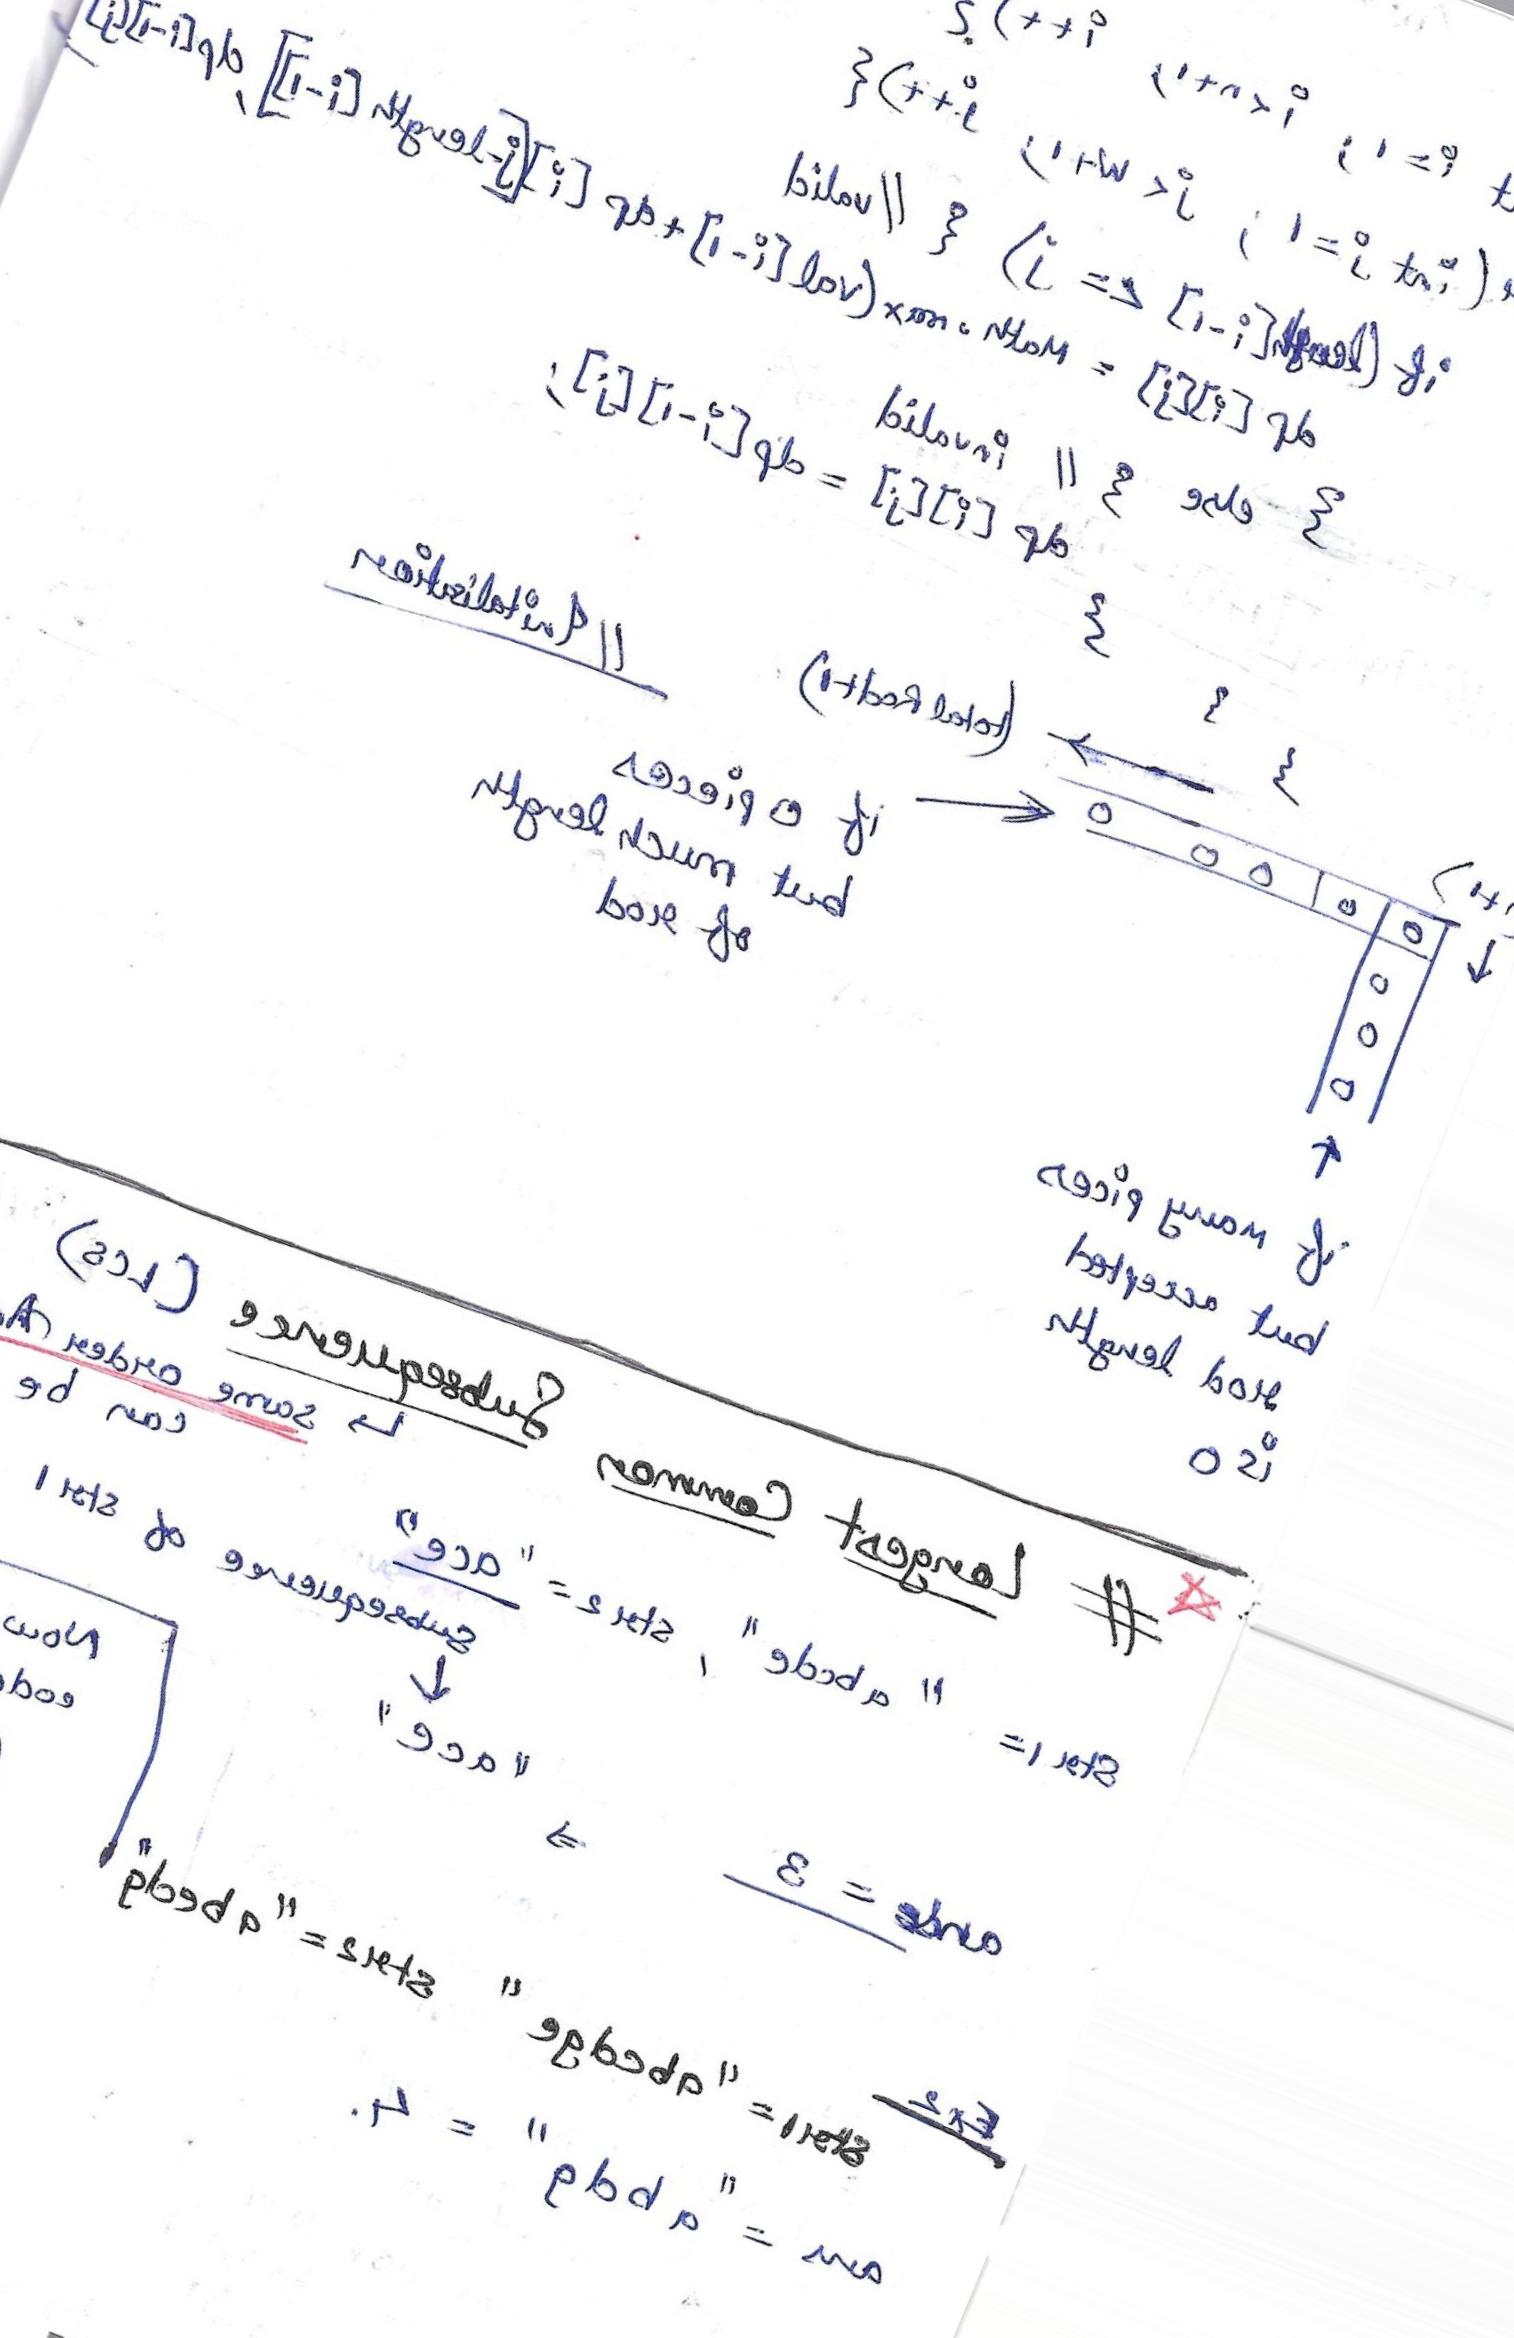 t i=1; i<n+1; i++){
(int j=1; j<W+1; j++){
if (length[i-1] <= j) { // valid
dp[i][j] = Math.max(val[i-1]+dp[i][j-length[i-1]], dp[i-1][j]
} else { // invalid
dp[i][j] = dp[i-1][j];
}
}
}
(total Rod+1)
// Initialisation
+1)
0 0 0 0 0
0
0
0
if 0 pieces
but much length
of rod
if many pices
but accepted
rod length
is 0
# Longest Common Subsequence (LCS)
↳ same order
can be
str1 = "abcde", str2 = "ace"
subsequence of str1
↓
"ace"
ans = 3
⇒
Now
code
Ex2
str1 = "abcdge" str2 = "abedg"
ans = "abdg" = 4.